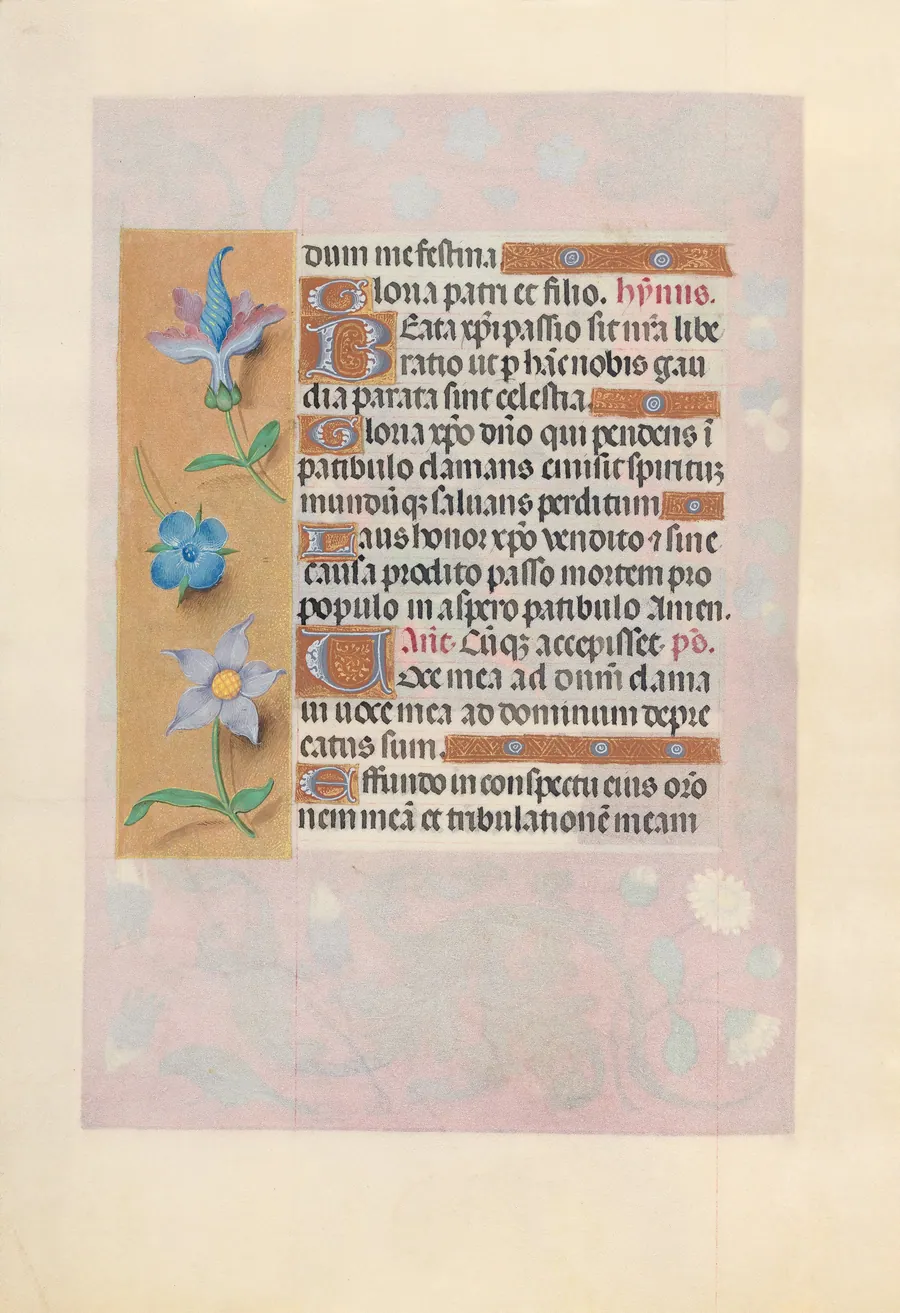 dum me festina.
Gloria patri et filio. hỹnus.
Beata xp̃i passio sit nr̃a libe
ratio ut p hãc nobis gau
dia parata sint celestia.
Gloria xp̃o dño qui pendens ĩ
patibulo clamans emisit spirituʒ
mundũ qʒ saluans perditum
Laus honor xp̃o vendito ⁊ sine
causa prodito passo mortem pro
populo in aspero patibulo Amen.
Añt. Cũqʒ accepisset. ps̃.
Uoce mea ad dnm̃ clama
ui uoce mea ad dominum depre
catus sum.
Effundo in conspectu eius orõ
nem meã et tribulationẽ meam